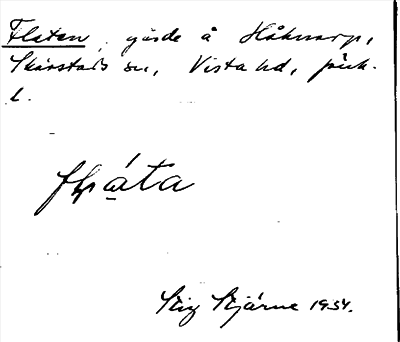 Flaten, gärde å Håknarp,
Skärstads sn, Vista hd, Jönk.
l.
Stig Stjärne 1954.